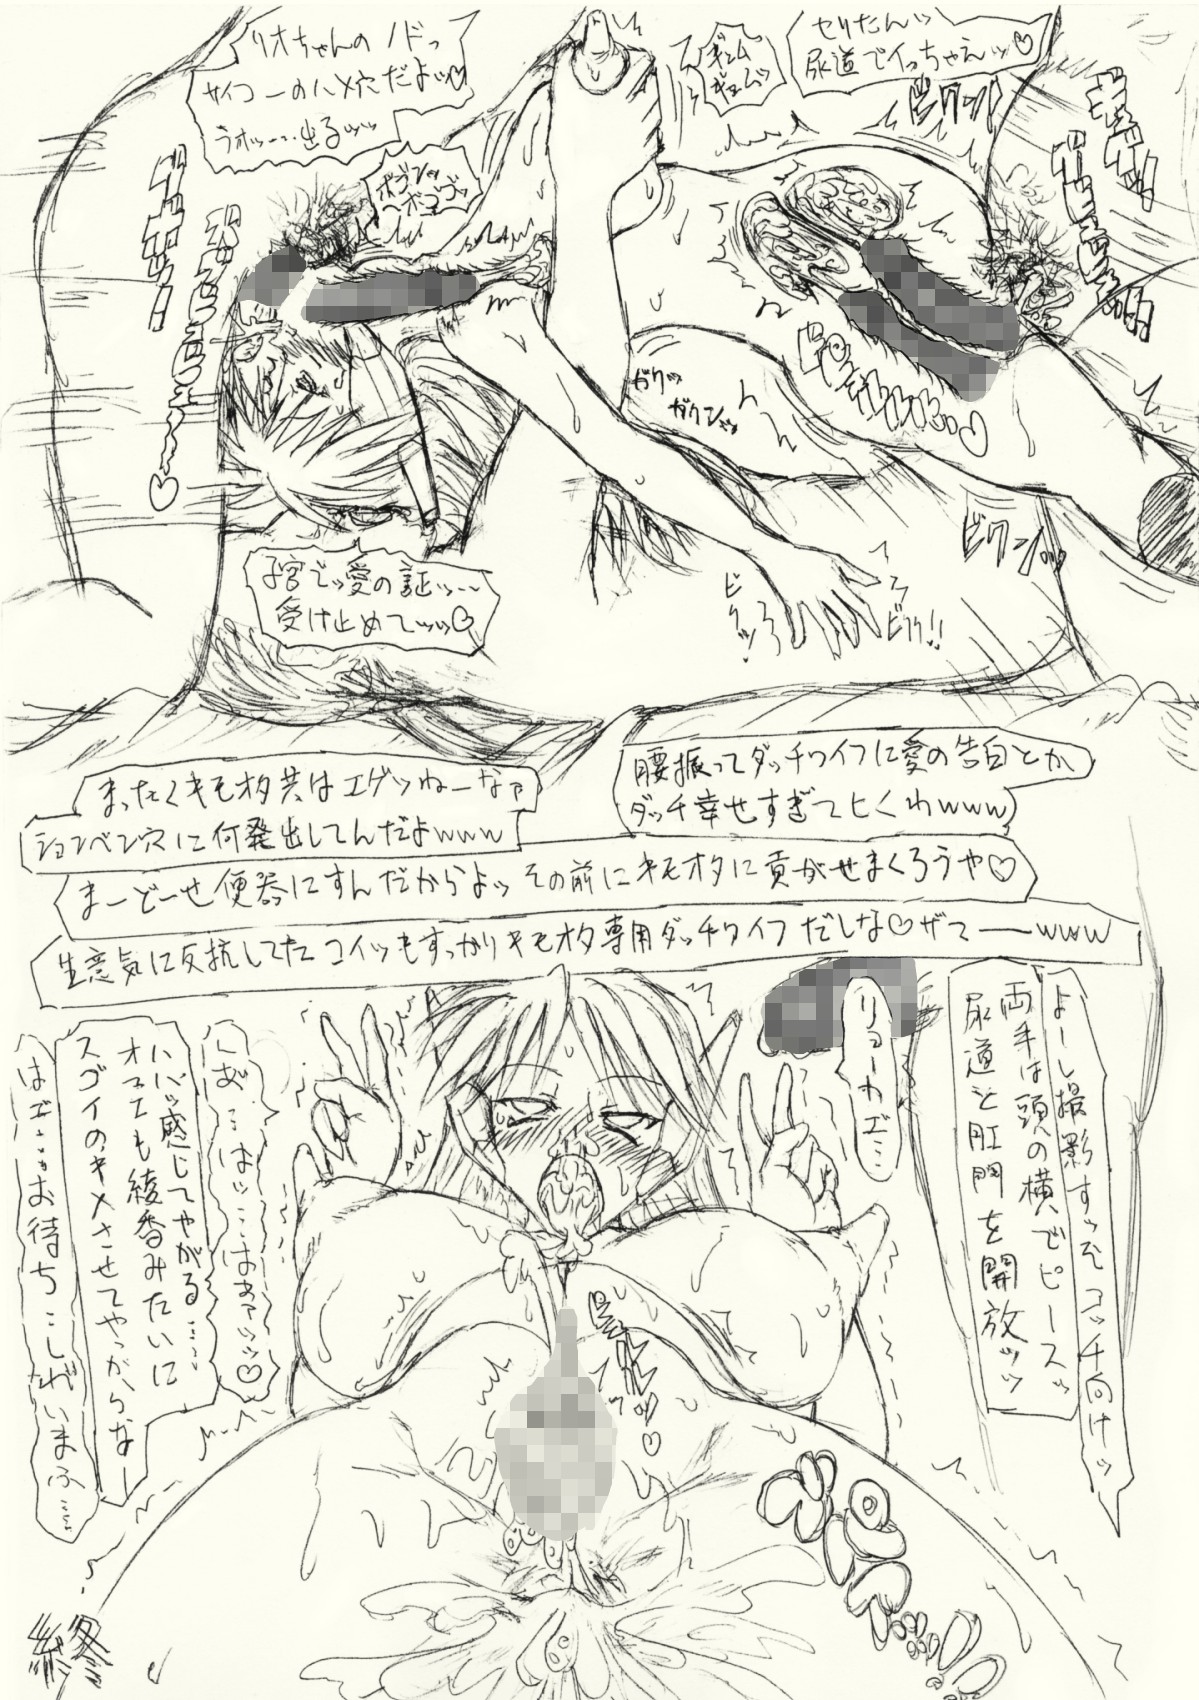 セリたんッ
尿道でイっちゃえッ♡
ギュム
ギュムッ
リオちゃんのノドっ
サイコーのハメ穴だよッ♡
うオッ……出るッッ
ガクッ
ガクンッ
ビクンッ…
ビクッ!
ビクク!!
子宮でッ愛の証ッ……
受け止めてッッ♡
腰振ってダッチワイフに愛の告白とか
ダッチ幸せすぎてヒくわwww
まったくキモオタ共はエゲツねーなァ
ションベン穴に何発出してんだよwww
まーどーせ便器にすんだからよッ その前にキモオタに貢がせまくろうや♡
生意気に反抗してたコイツもすっかりキモオタ専用ダッチワイフだしな♡ザマーーwww
よーし撮影すっぞコッチ向けッ
両手は頭の横でピースッ
尿道と肛門を開放ッッ
りョーかエ…
ハハッ感じてやがる……
オマエも綾香みたいに
スゴイのキメさせてやっからなー